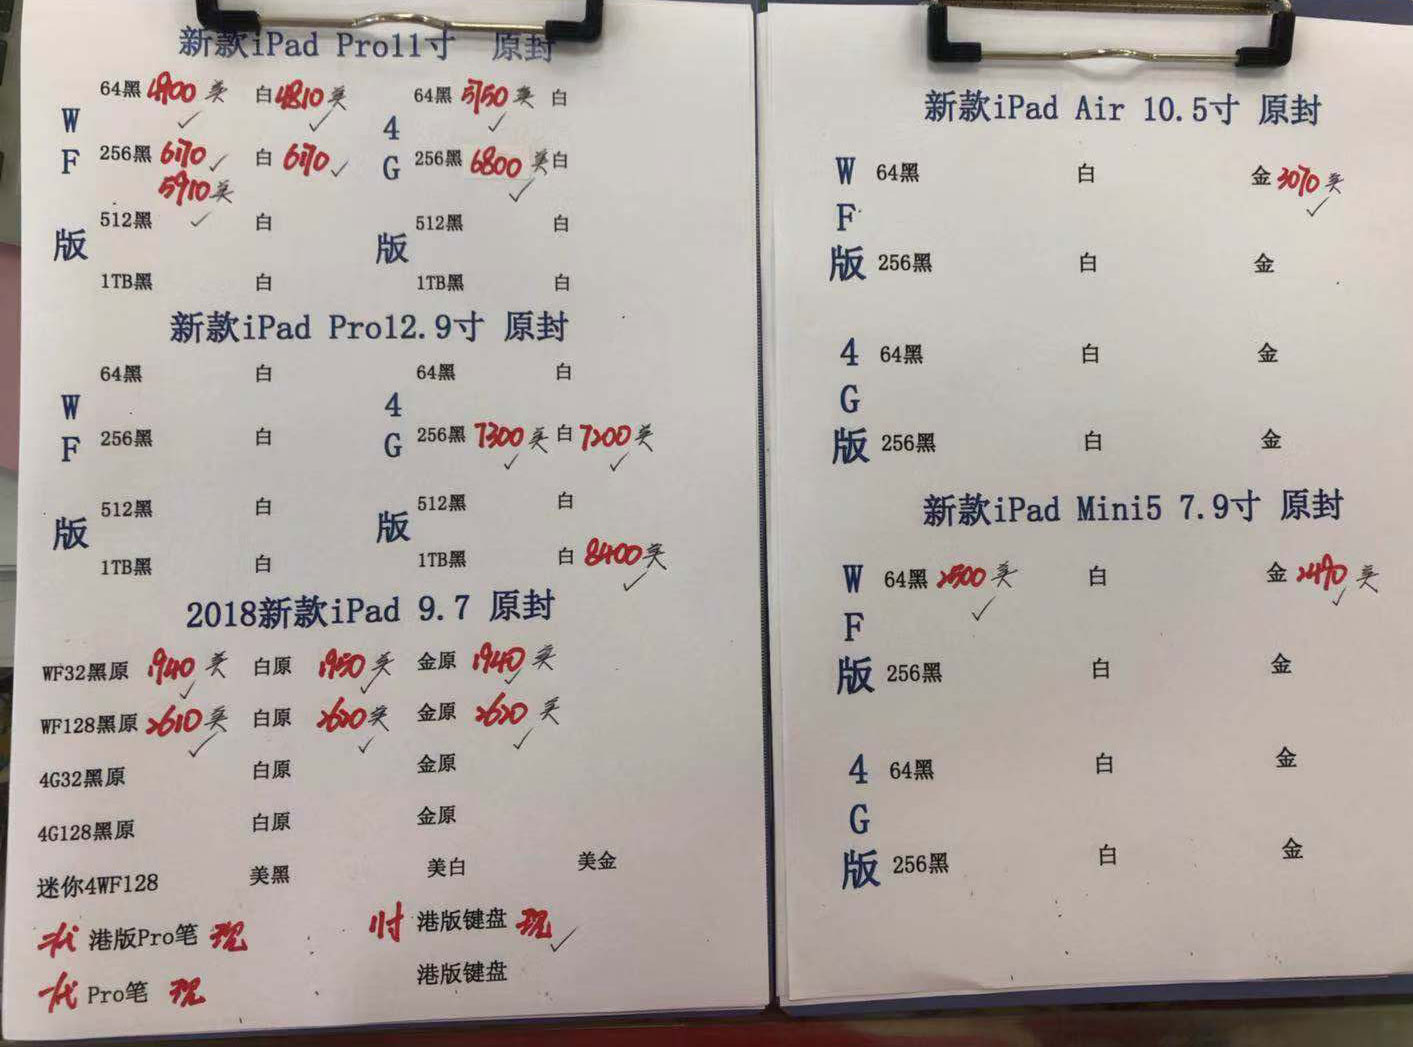 新款iPad Pro11寸 原封
WF版 64黑 4900 美 白 4810 美 4G版 64黑 5150 美 白
256黑 6170 白 6170 256黑 6800 美 白
5910 美
512黑 白 512黑 白
1TB黑 白 1TB黑 白
新款iPad Pro12.9寸 原封
WF版 64黑 白 4G版 64黑 白
256黑 白 256黑 7300 美 白 7200 美
512黑 白 512黑 白
1TB黑 白 1TB黑 白 8400 美
2018新款iPad 9.7 原封
WF32黑原 1940 美 白原 1950 美 金原 1940 美
WF128黑原 2610 美 白原 2620 美 金原 2620 美
4G32黑原 白原 金原
4G128黑原 白原 金原
迷你4WF128 美黑 美白 美金
港版Pro笔 现 11寸 港版键盘 现
Pro笔 现 港版键盘
新款iPad Air 10.5寸 原封
WF版 64黑 白 金 3070 美
256黑 白 金
4G版 64黑 白 金
256黑 白 金
新款iPad Mini5 7.9寸 原封
WF版 64黑 2500 美 白 金 2490 美
256黑 白 金
4G版 64黑 白 金
256黑 白 金